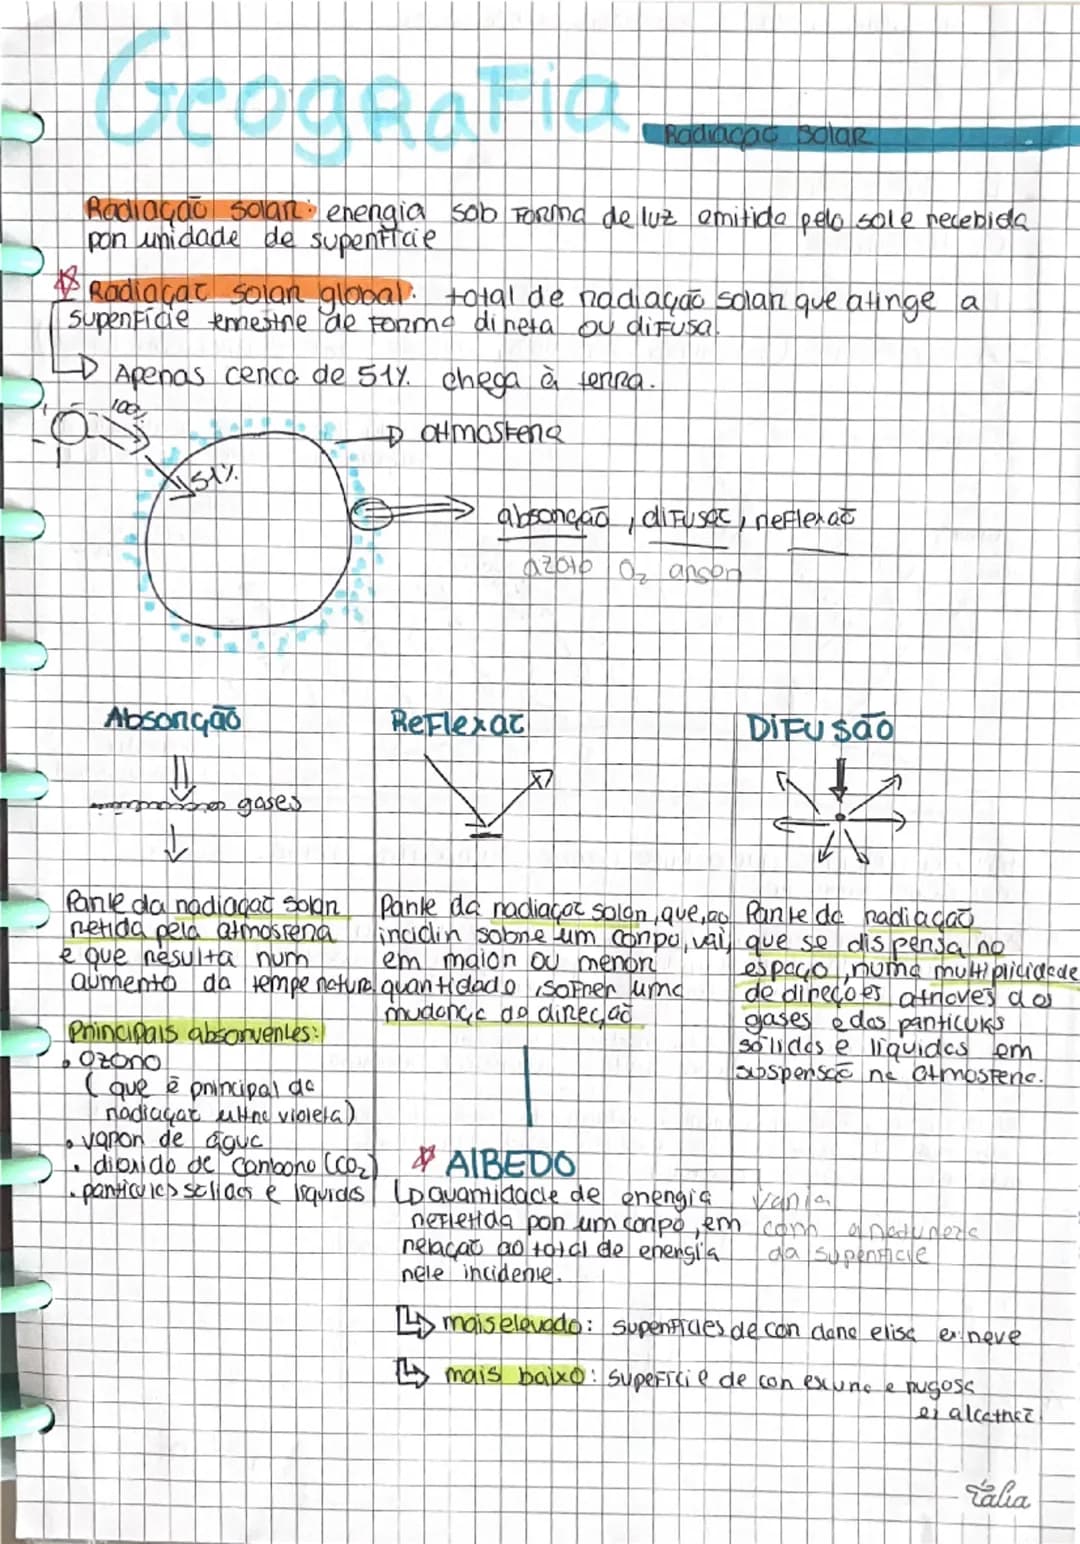 Geografia
Radiação Solar
Radiação solar: energia sob forma de luz emitida pelo sol e recebida
por unidade de superfície
Radiação solar global: total de radiação solar que atinge a
superfície terrestre de forma direta ou difusa.
Apenas cerca de 51% chega à terra.
100%
atmosfera
51%
absorção, difusão, reflexão
azoto O₂ argon
Absorção
gases
Parte da radiação solar
retida pela atmosfera
e que resulta num
aumento da temperatura
Principais absorventes:
• ozono
(que é principal da
radiação ultra violeta)
• vapor de água
• dioxido de carbono (CO₂)
• particules solidas e liquidas
Reflexão
Parte da radiação solar, que, ao
incidir sobre um corpo, vai,
em maior ou menor
quantidade, sofrer uma
mudança de direção
ALBEDO
Quantidade de energia
refletida por um corpo, em
relação ao total de energia
nele incidente.
varia
com a natureza
da superficie
mais elevado: superficies de cor clara e lisa ex: neve
mais baixo: superficie de cor escura e rugosa
ex alcatrão
DIFUSÃO
Parte da radiação
que se dispersa no
espaço, numa multiplicidade
de direções atraves dos
gases e das particulas
sólidas e liquidas em
suspensão na atmosfera.
Tália